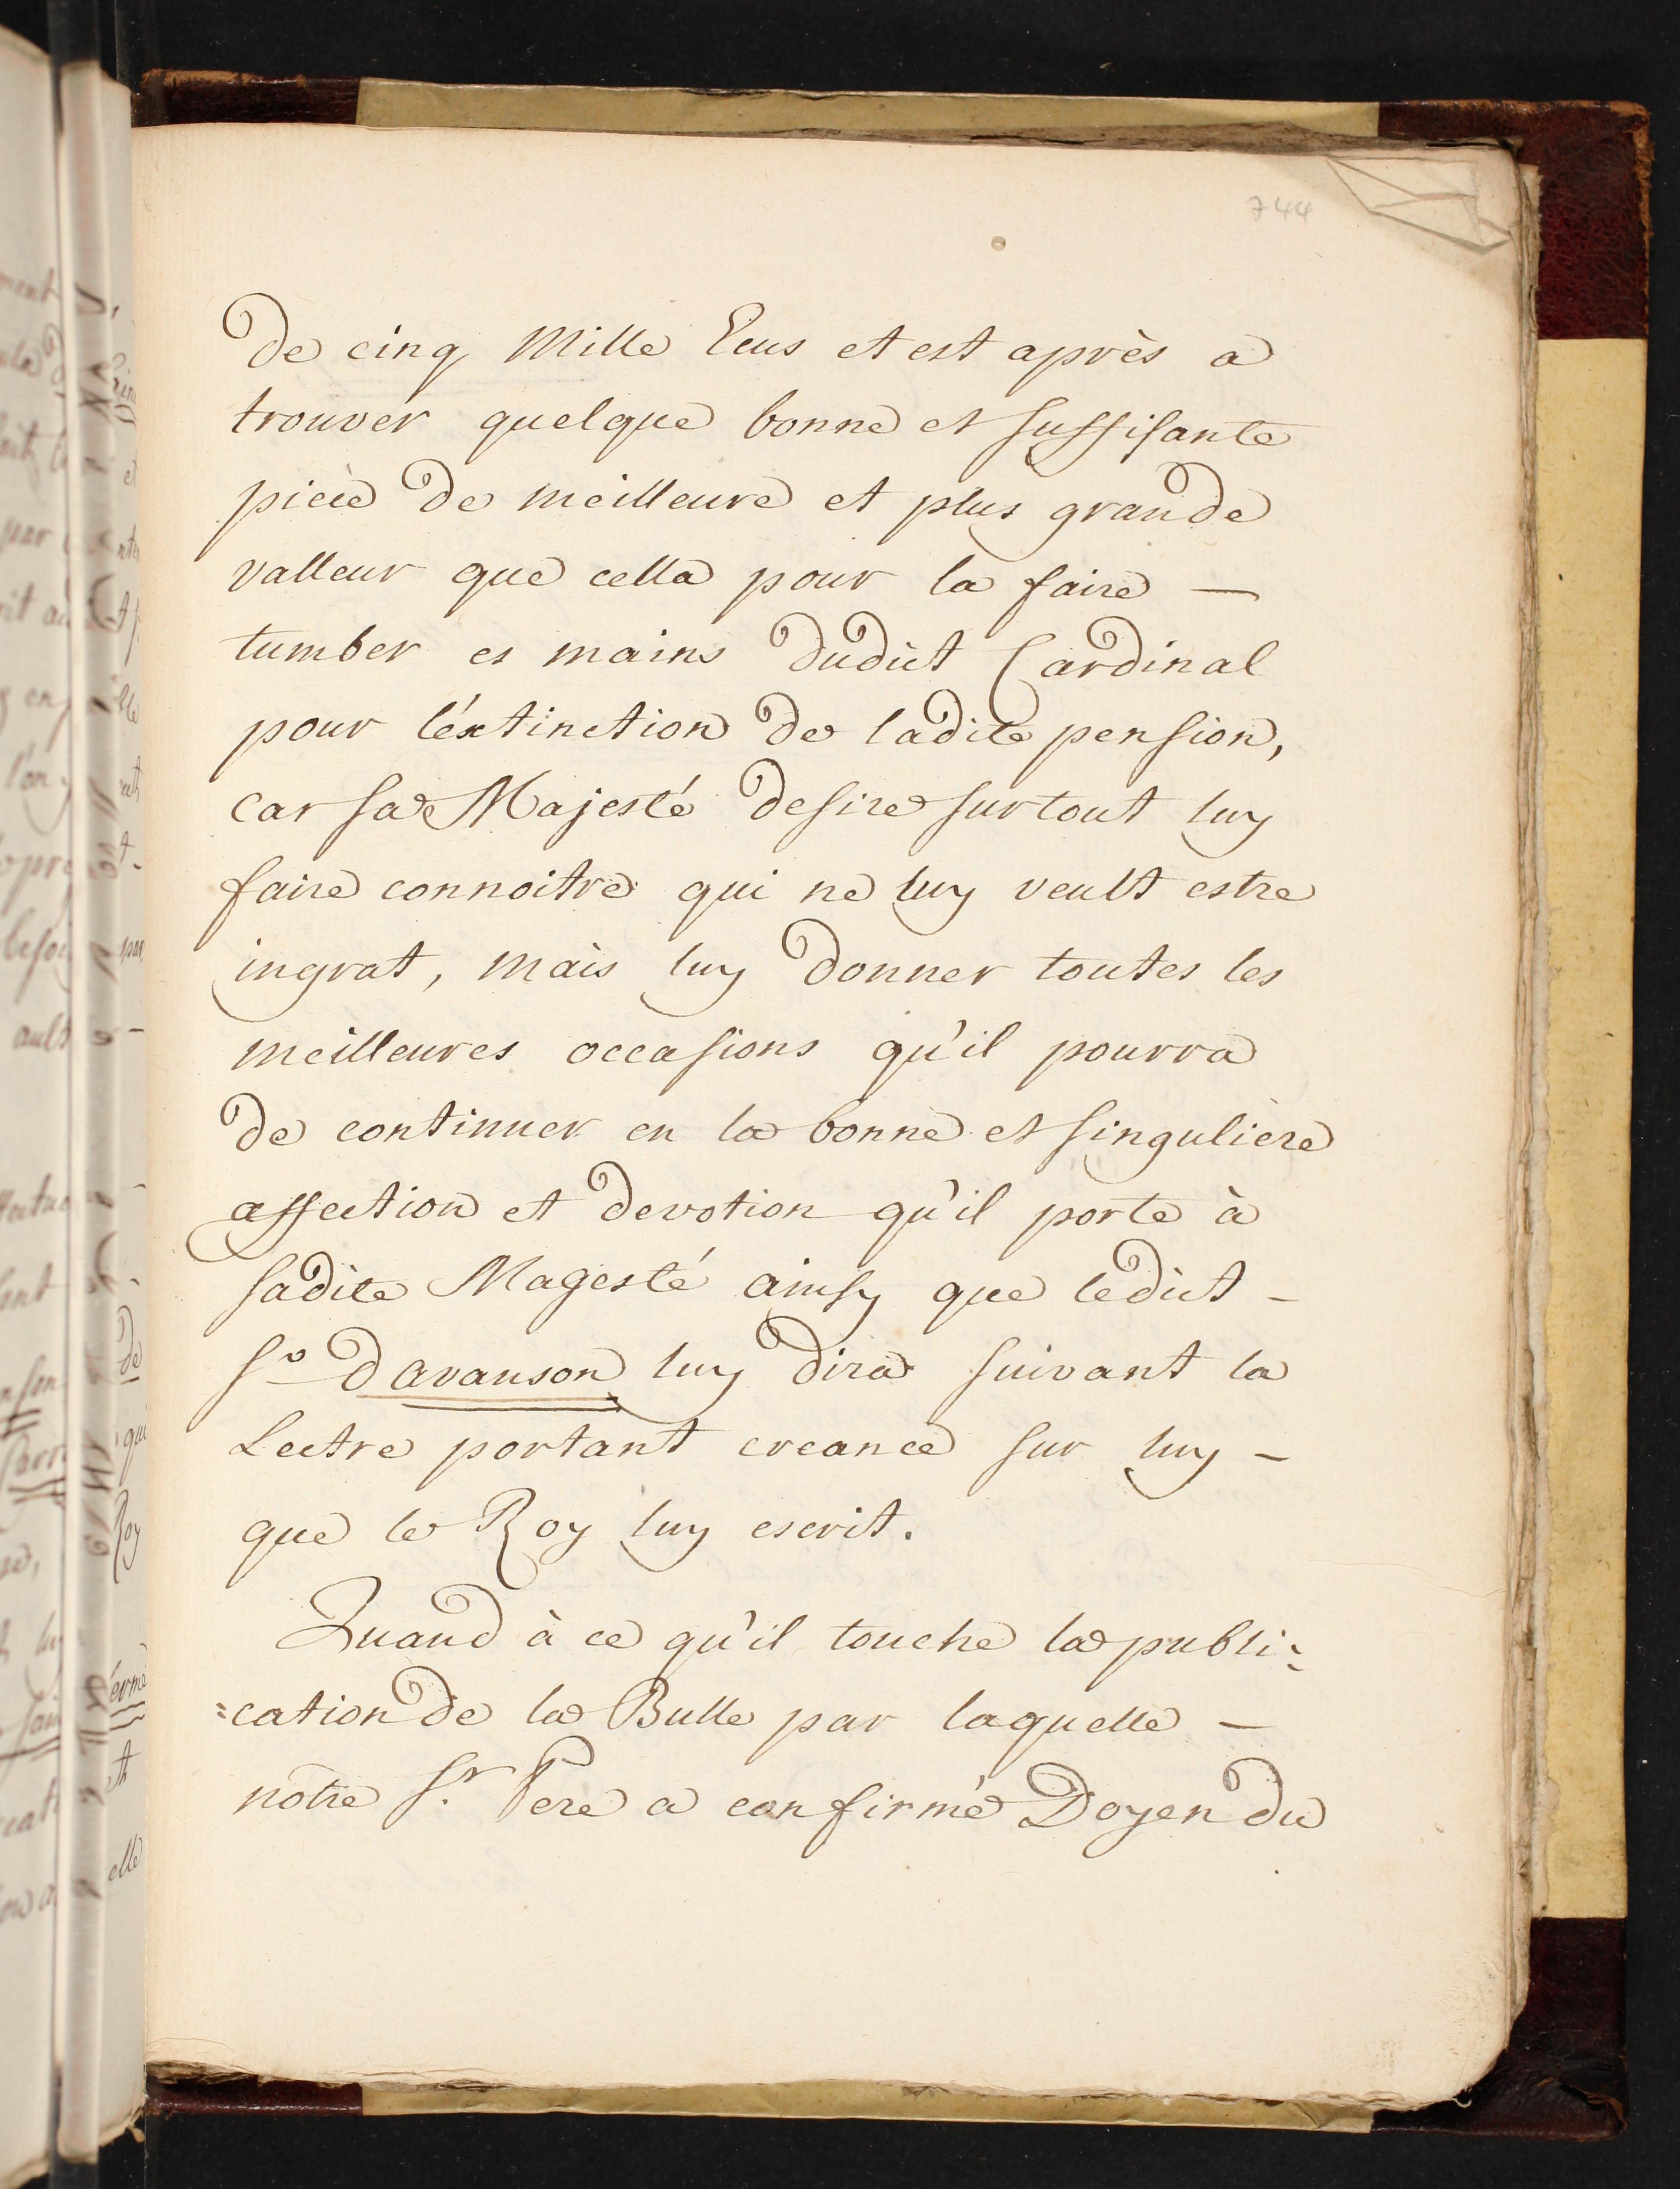 744
De cinq Mille Ecus et est après a
trouver quelque bonne et suffisante
pièce de meilleure et plus grande
valleur que cella pour la faire —
tumber es mains dudict Cardinal
pour léxtinction de ladite pension,
car sa Majesté desire sur tout luy
faire connoitre qui ne luy veult estre
ingrat, mais luy donner toutes les
meilleures occasions qu'il pourra
de continuer en la bonne et singuliere
affection et devotion qu'il porte à
sadite Magesté ainsy que ledict -
Sr Davanson luy dira suivant la
Lectre portant creance sur luy -
que le Roy luy escrit.
Quand à ce qu'il touche la publi=
=cation de la Bulle par laquelle —
nôtre St. Pere a confirmé Doyen du